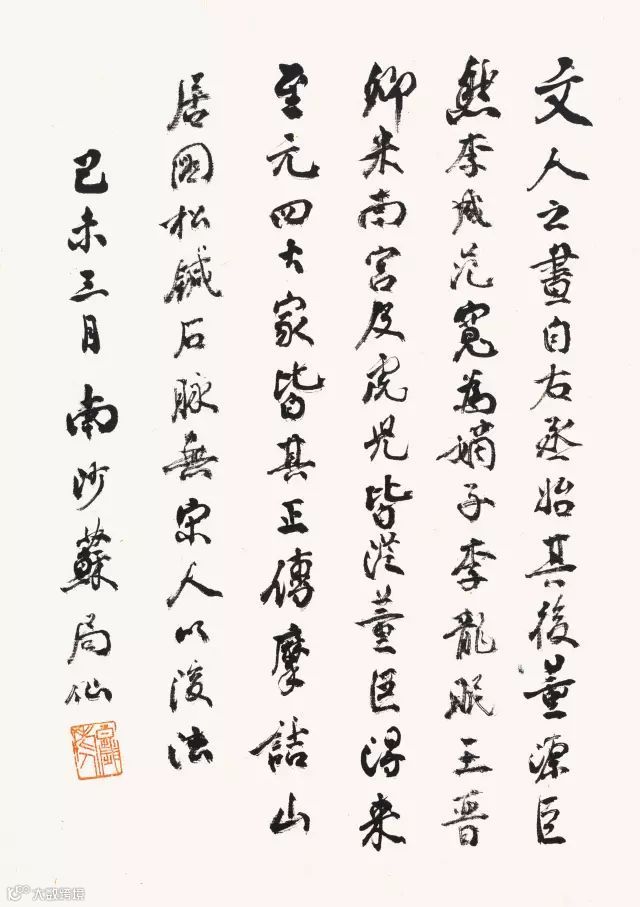 文人之畫自右丞始其後董源巨
然李成范寬為嫡子李龍眠王晉
卿米南宮及虎兒皆從董巨得來
至元四大家皆其正傳摩詰山
居圖松鍼石脈無宋人以後法
己未三月南沙蘇局仙
大数跨境